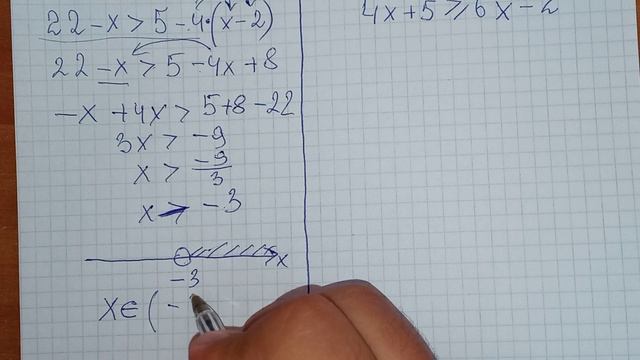 22-x>5-4·(x-2)
22-x>5-4x+8
-x+4x>5+8-22
3x>-9
x>-9/3
x>-3
x
-3
x∈(-
4x+5≥6x-2